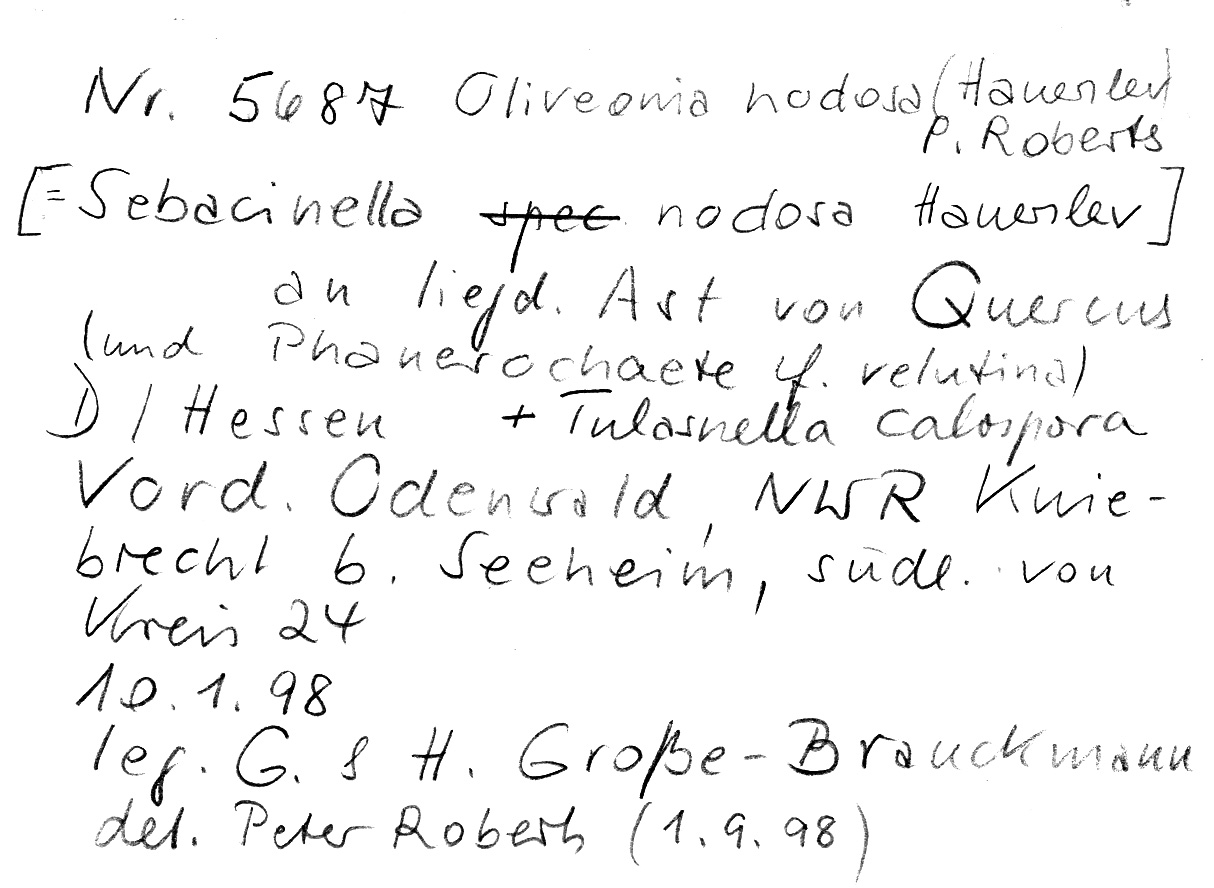 Nr. 5687 Oliveonia nodosa (Hauerslev)
P. Roberts
[= Sebacinella spec nodosa Hauerslev]
an liegd. Ast von Quercus
(und Phanerochaete cf. velutina)
D / Hessen + Tulasnella calospora
Vord. Odenwald, NWR Knie-
brecht b. Seeheim, südl. von
Kreis 24
10.1.98
leg. G. & H. Große-Brauckmann
det. Peter Roberts (1.9.98)